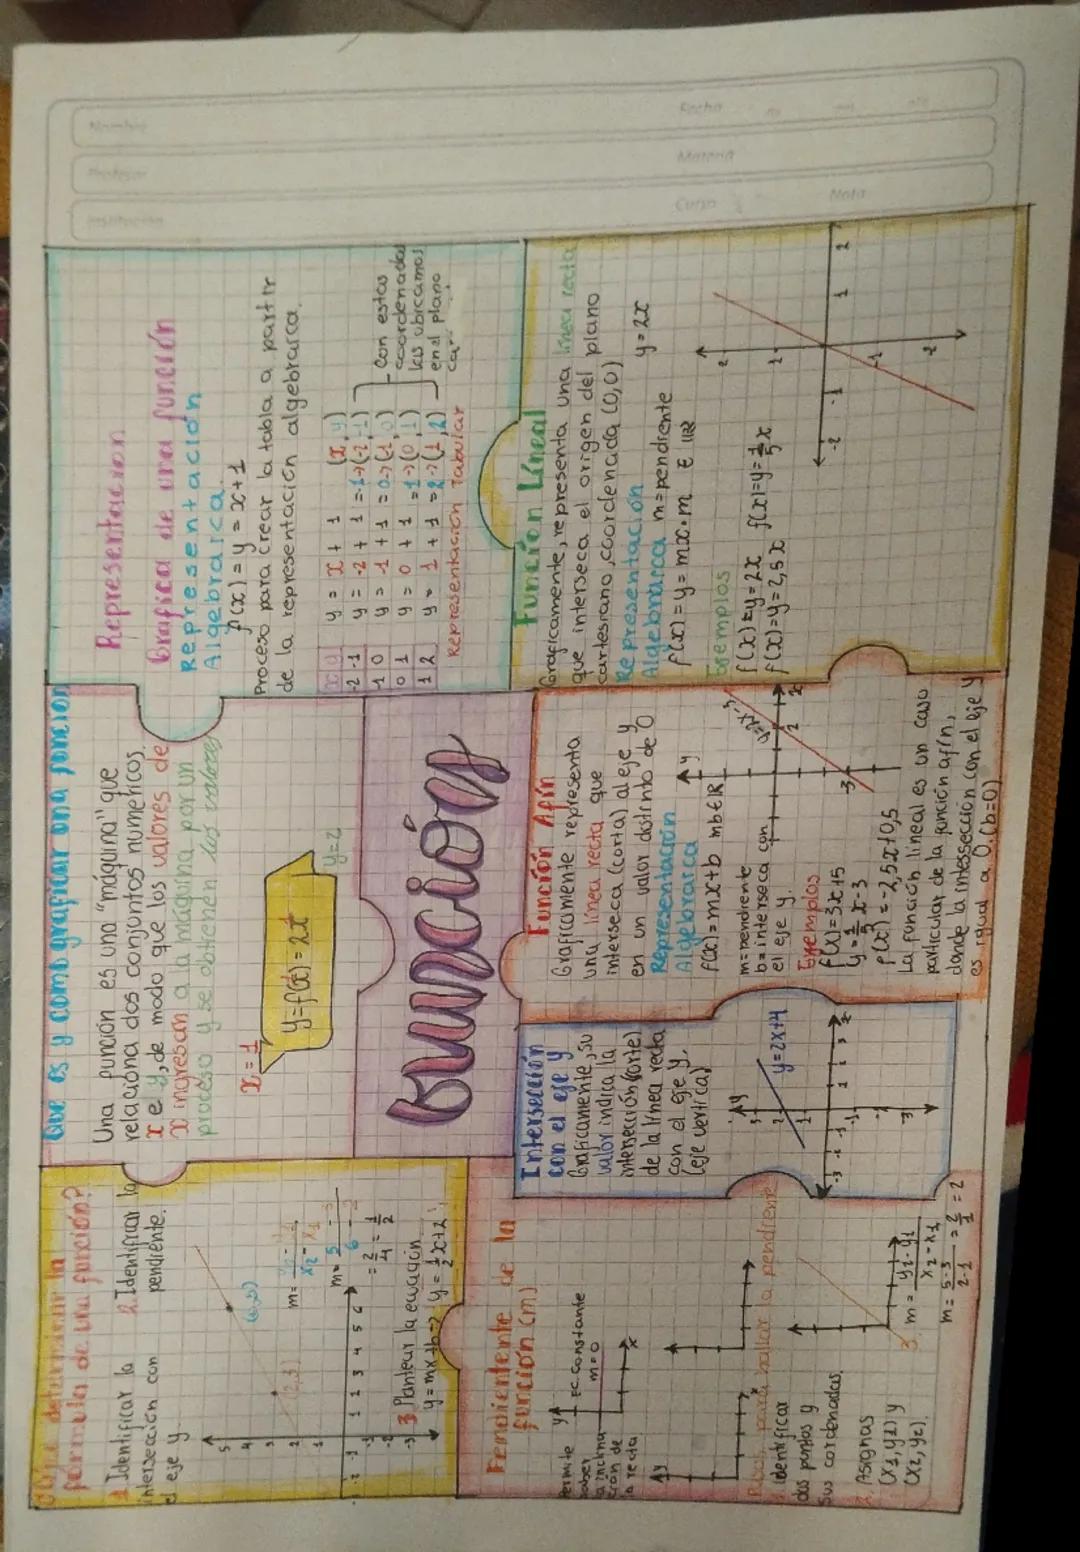 Nombre
Fecha
Profesor
Materia
Institución
Curso
Nota
determinar la
formula de una función?
1 Identificar la
intersección con
el eje y
2. Identificar la
pendiente.
(2,3)
m=
x2 - x1
= 2/4 = 1/2
3 Plantear la ecuación
y=mx+b→ y= 1/2x+2
Que es y como graficar una función
Una función es una "máquina" que
relaciona dos conjuntos numéricos
x e y, de modo que los valores de
x ingresan a la máquina por un
proceso y se obtienen los valores
x=1
y=f(x)=2x
y=2
Representacion
Grafica de una función
Representación
Algebraica
f(x)=y=x+1
Proceso para crear la tabla a partir
de la representación algebraica.
x y
-2 -1
-1 0
0 1
1 2
y = x + 1 (x,y)
y = -2 + 1 =-1→(-2,-1)
y = -1 + 1 =0→(-1,0)
y = 0 + 1 =1→(0,1)
y = 1 + 1 =2→(1,2)
Con estas
coordenadas
las ubicamos
en el plano
Representación Tabular
Función
Pendiente de la
función (m)
Permite
saber
la
ción de
la recta
FC. Constante
m=0
y
x
para hallar la pendiente
1. identificar
dos puntos y
sus cordenadas.
2. Asignas
(x1,y1) y
(x2,y2).
m= y2-y1
x2-x1
m= 5-3/2-1 = 2/1 = 2
Intersección
con el eje y
Graficamente, su
valor indica la
intersección (corte)
de la línea recta
con el eje y.
(eje vertical)
y=2x+4
Función Afín
Graficamente representa
una línea recta que
interseca (corta) al eje y
en un valor distinto de 0
Representación
Algebraica
f(x)=mx+b mb∈ℝ
m=pendiente
b=interseca con
el eje y.
Ejemplos
f(x)=3x+5
f(x)=-2,5x+0,5
La función lineal es un caso
particular de la función afín,
donde la intersección con el eje y
es igual a 0,(b=0)
Función Líneal
Graficamente, representa una línea recta
que interseca el origen del plano
cartesiano, coordenada (0,0)
Representación
Algebraica m=pendiente
f(x)=y=mx•m E ℝ
y=2x
Ejemplos
f(x)=y=2x f(x)=y=1/5x
f(x)=y=2,5x